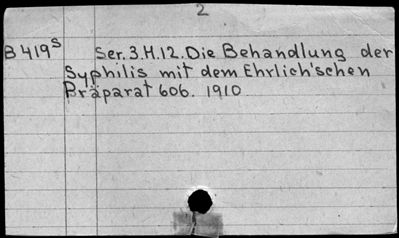 2
B 419ˢ Ser. 3. H. 12. Die Behandlung der
Syphilis mit dem Ehrlich'schen
Präparat 606. 1910